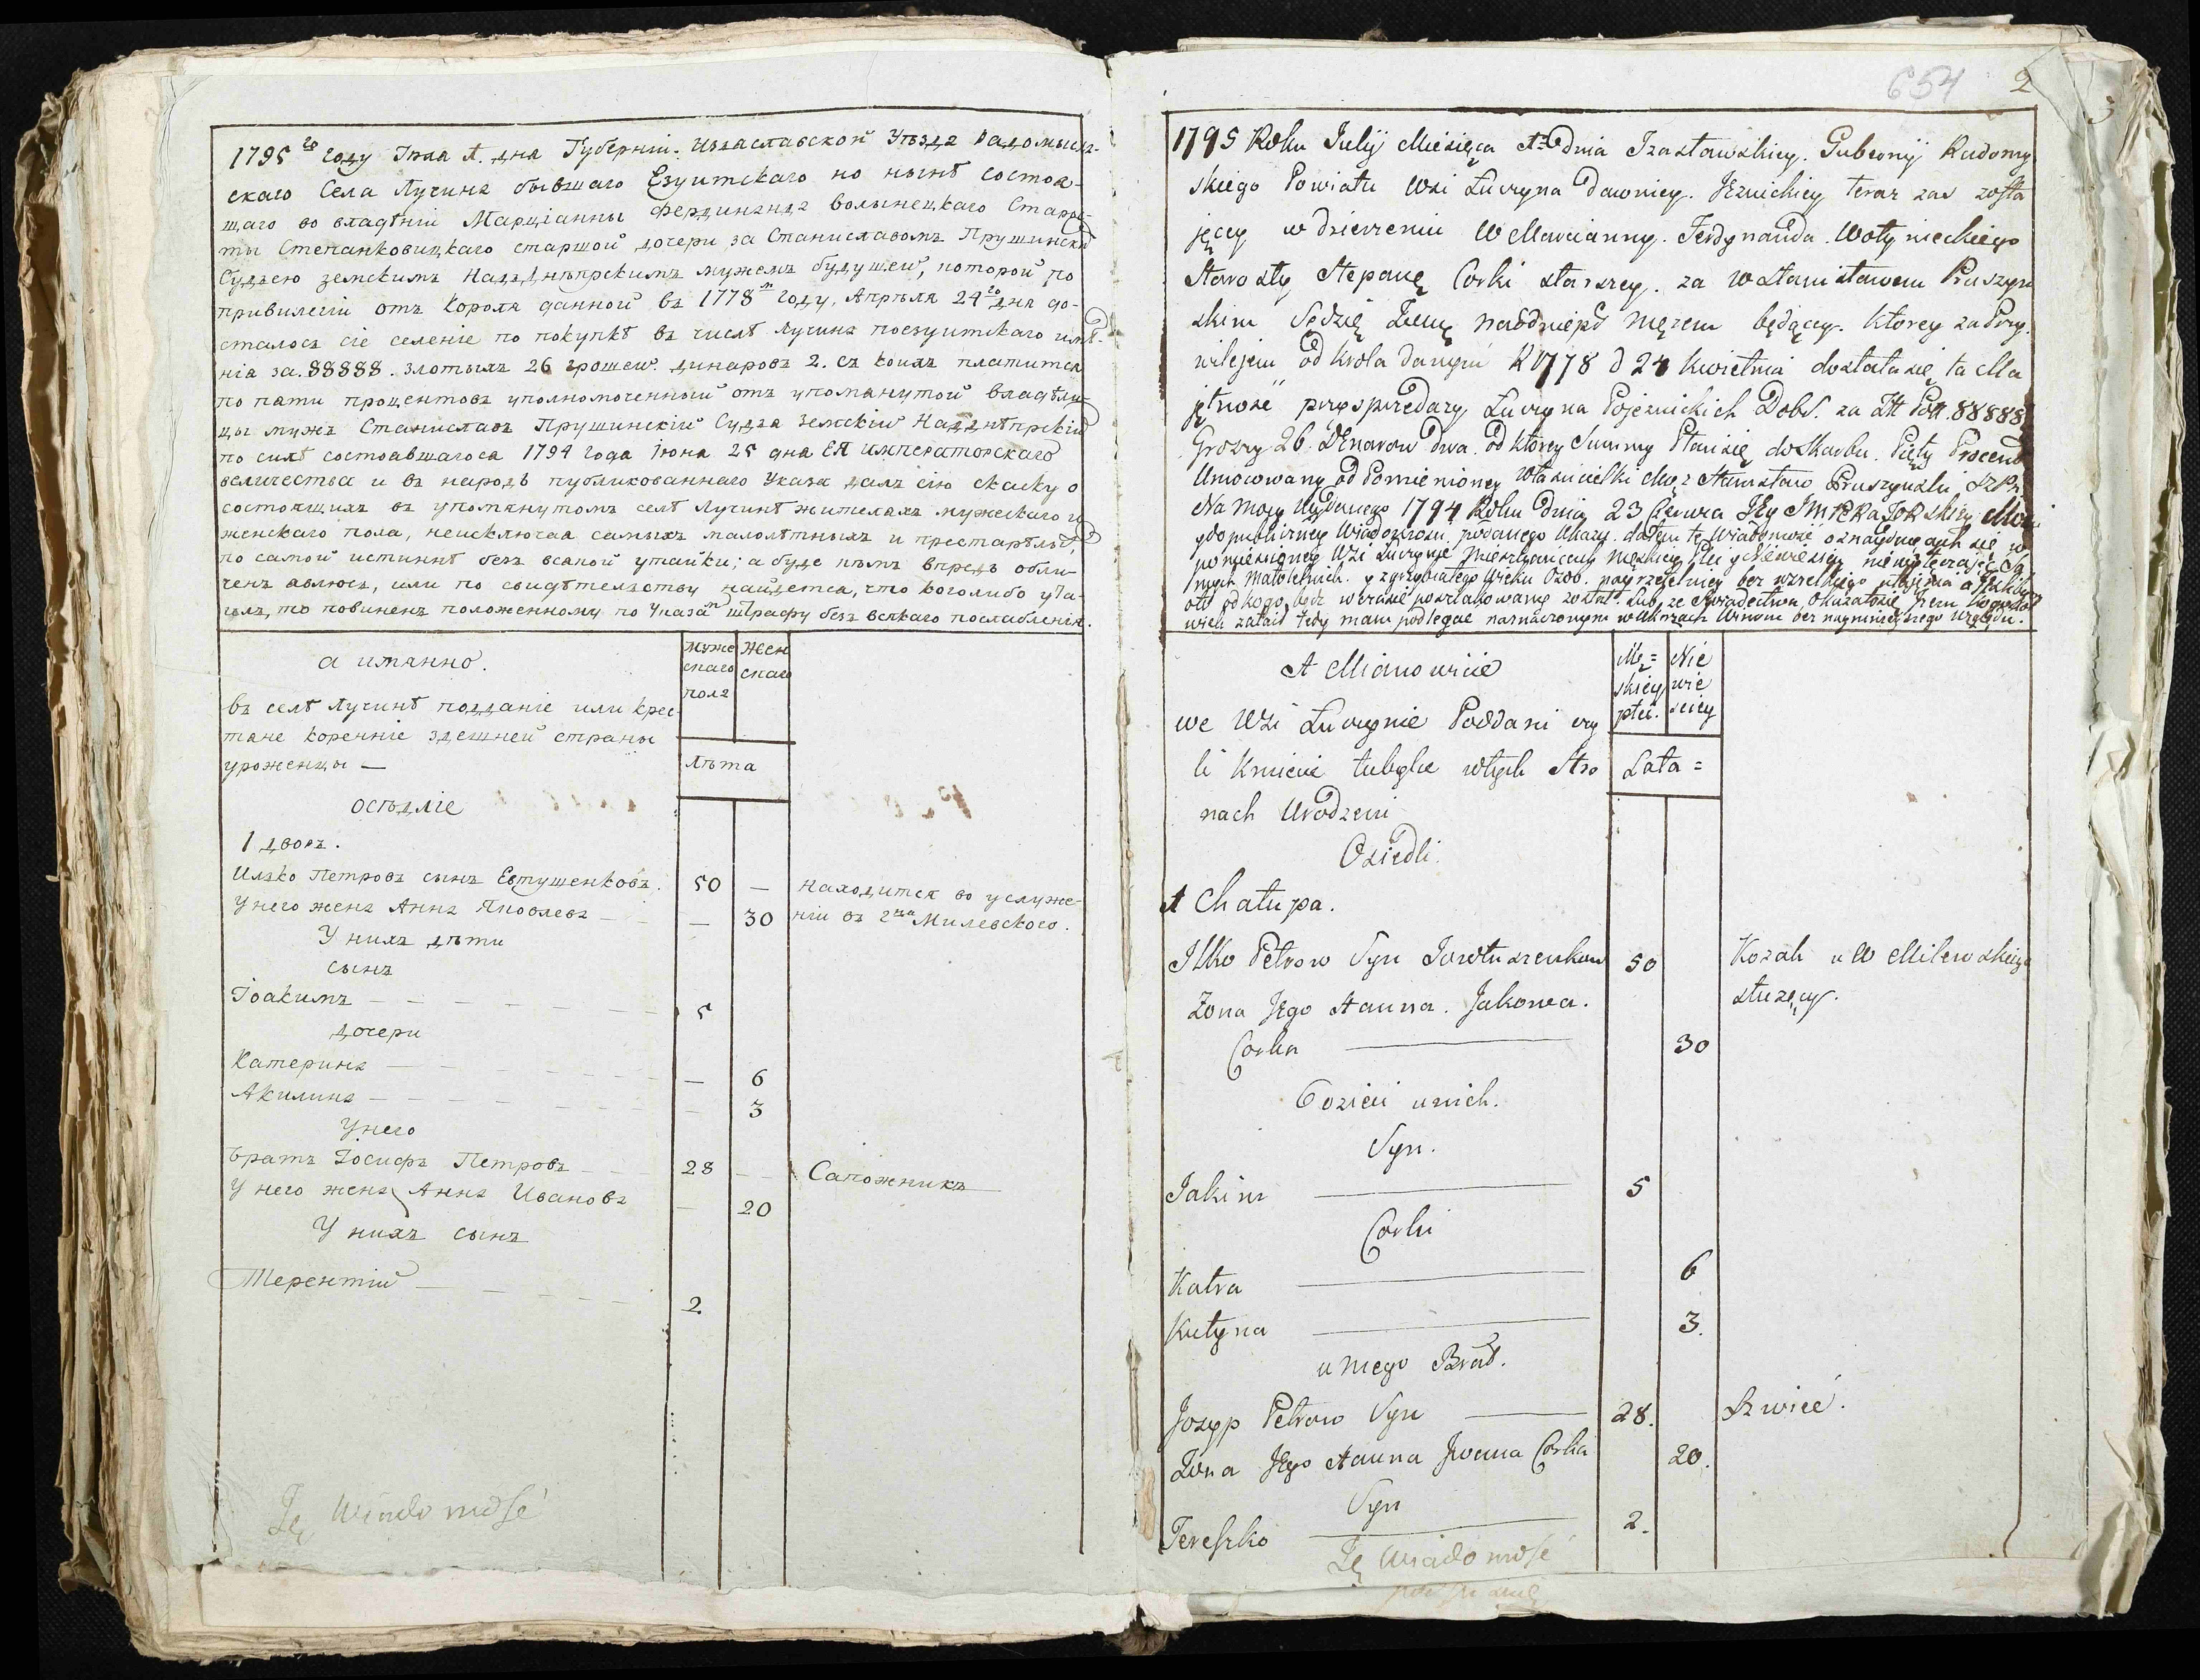 1795го году Іюля 1. дня Губерніи Изяславской Уѣзда Радомысль-
скаго Села Лучина бывшаго Езуитскаго но нынѣ состоя-
щаго во владѣніи Марціанны Фердинанда Волынецкаго Старос-
ты Степанковицкаго старшой дочери за Станиславомъ Прушинскимъ
Судьею земскимъ Наддн̄ѣпрскимъ мужемъ будущей, которой по
привилегіи отъ Короля данной въ 1778м году, Апрѣля 24го дня до-
сталось сіе селеніе по покупкѣ въ числѣ Лучина поезуитскаго имѣ-
нія за. 88888. злотыхъ 26 грошей. динаровъ 2. съ коихъ платится
по пяти процентовъ уполномоченный отъ упомянутой владѣли-
цы мужъ Станиславъ Прушинскій Судья Земскій Наднѣпрскій
по силѣ состоявшагося 1794 года Іюня 25 дня ЕЯ императорскаго
величества и въ народъ публикованнаго Указа далъ сію скаску о
состоящихъ въ упомянутомъ селѣ Лучинѣ жителяхъ мужескаго и
женскаго пола, неисключая самыхъ малолѣтныхъ и престарѣлыхъ,
по самой истиннѣ безъ всякой утайки; а буде кѣмъ впредь обли-
ченъ явлюсь, или по свидѣтельству найдется, что коголибо ута-
илъ, то повиненъ положенному по Указам штрафу безъ всякаго послабленія.
а имянно.
Муже
скаго
пола
Жен
скаго
въ селѣ Лучинѣ подданіе или крес-
тяне коренніе здешней страны
уроженцы —
Лѣта
осѣдліе
1 дворъ.
Илько Петровъ сынъ Евтушенковъ. 50 — находится во услуже-
У него жена Анна Яковлева — — 30 ніи въ г‑на Милевского.
У нихъ дѣти
сынъ
Іоакимъ — 5
дочери
Катерина — — 6
Акилина — — 3
У него
Братъ Іосифъ Петровъ 28 — Сапожникъ
У него жена Анна Иванова — 20
У нихъ сынъ
Терентій — 2
Tę Wiadomość
654 2
1795 Roku Julij Miesięca 1go Dnia Izasławskiey. Gubernij Radomy
skiego Powiatu Wsi Łuczyna Dawniey. Jezuickiey teraz zas zosta
jęcey w dzierzeniu W Marcianny. Ferdynanda. Wołynieckiego
Starosty Stepanę Corki starszey. za W Stanisławem Pruszyn
skim Sędzię Ziemę naddniepr męzem będącey. ktorey za Przy.
wilejem od Krola danym R 1778 d 24 Kwietnia dostała się ta Ma
jętnosc przysprzedazy Łuczyna Pojezuickich Dobr. za Złł Poll. 88888.
Groszy 26 Denarow Dwa. od ktorey Summy Płaci się do Skarbu. Pięty Procent
Umocowany od Pomienioney Własicielki Mąz Stanisław Pruszynski SZPN
Na Mocy Wydanego 1794 Roku Dnia 23 Czerwca Jey IMPERATORskiey Mosci
y do publiczney Wiadomosci podanego Ukazu. dałem tę Wiadomosc o znayduięcych się w
pomienioney Wsi Łuczynie Mieszkancach męskiey Płci y Niewiesciey niewyłęczaięc Sa
mych małoletnich. y zgrzybiałego Wieku Osob. nayrzetelniey bez wszelkiego utaienia a jesliby
wiek zataił tedy mam podlegac naznaczonym w Ukazach Winom bez naymnieyszego względu.
A Mianowicie
Mę=
skiey
płci.
Nie
wie
sciey
we Wsi Łuczynie Poddani czy
li Kmiecie tubylce wtych Stro
nach Urodzeni
Lata =
Osiedli.
1 Chałupa.
Ilko Petrow Syn Jowtuszenkow 50 Kozak u W Milewskiego
Zona Jego Hanna. Jakowa. słuzęcy.
Corka — 30
Dzieci unich.
Syn.
Jakim — 5
Corki
Katra — 6
Kulyna — 3.
u niego Brat.
Josyp Petrow Syn — 28. Szwiec.
Zona Jego Hanna Iwana Corka 20.
Syn
Tereszko — 2.
Tę Wiadomość